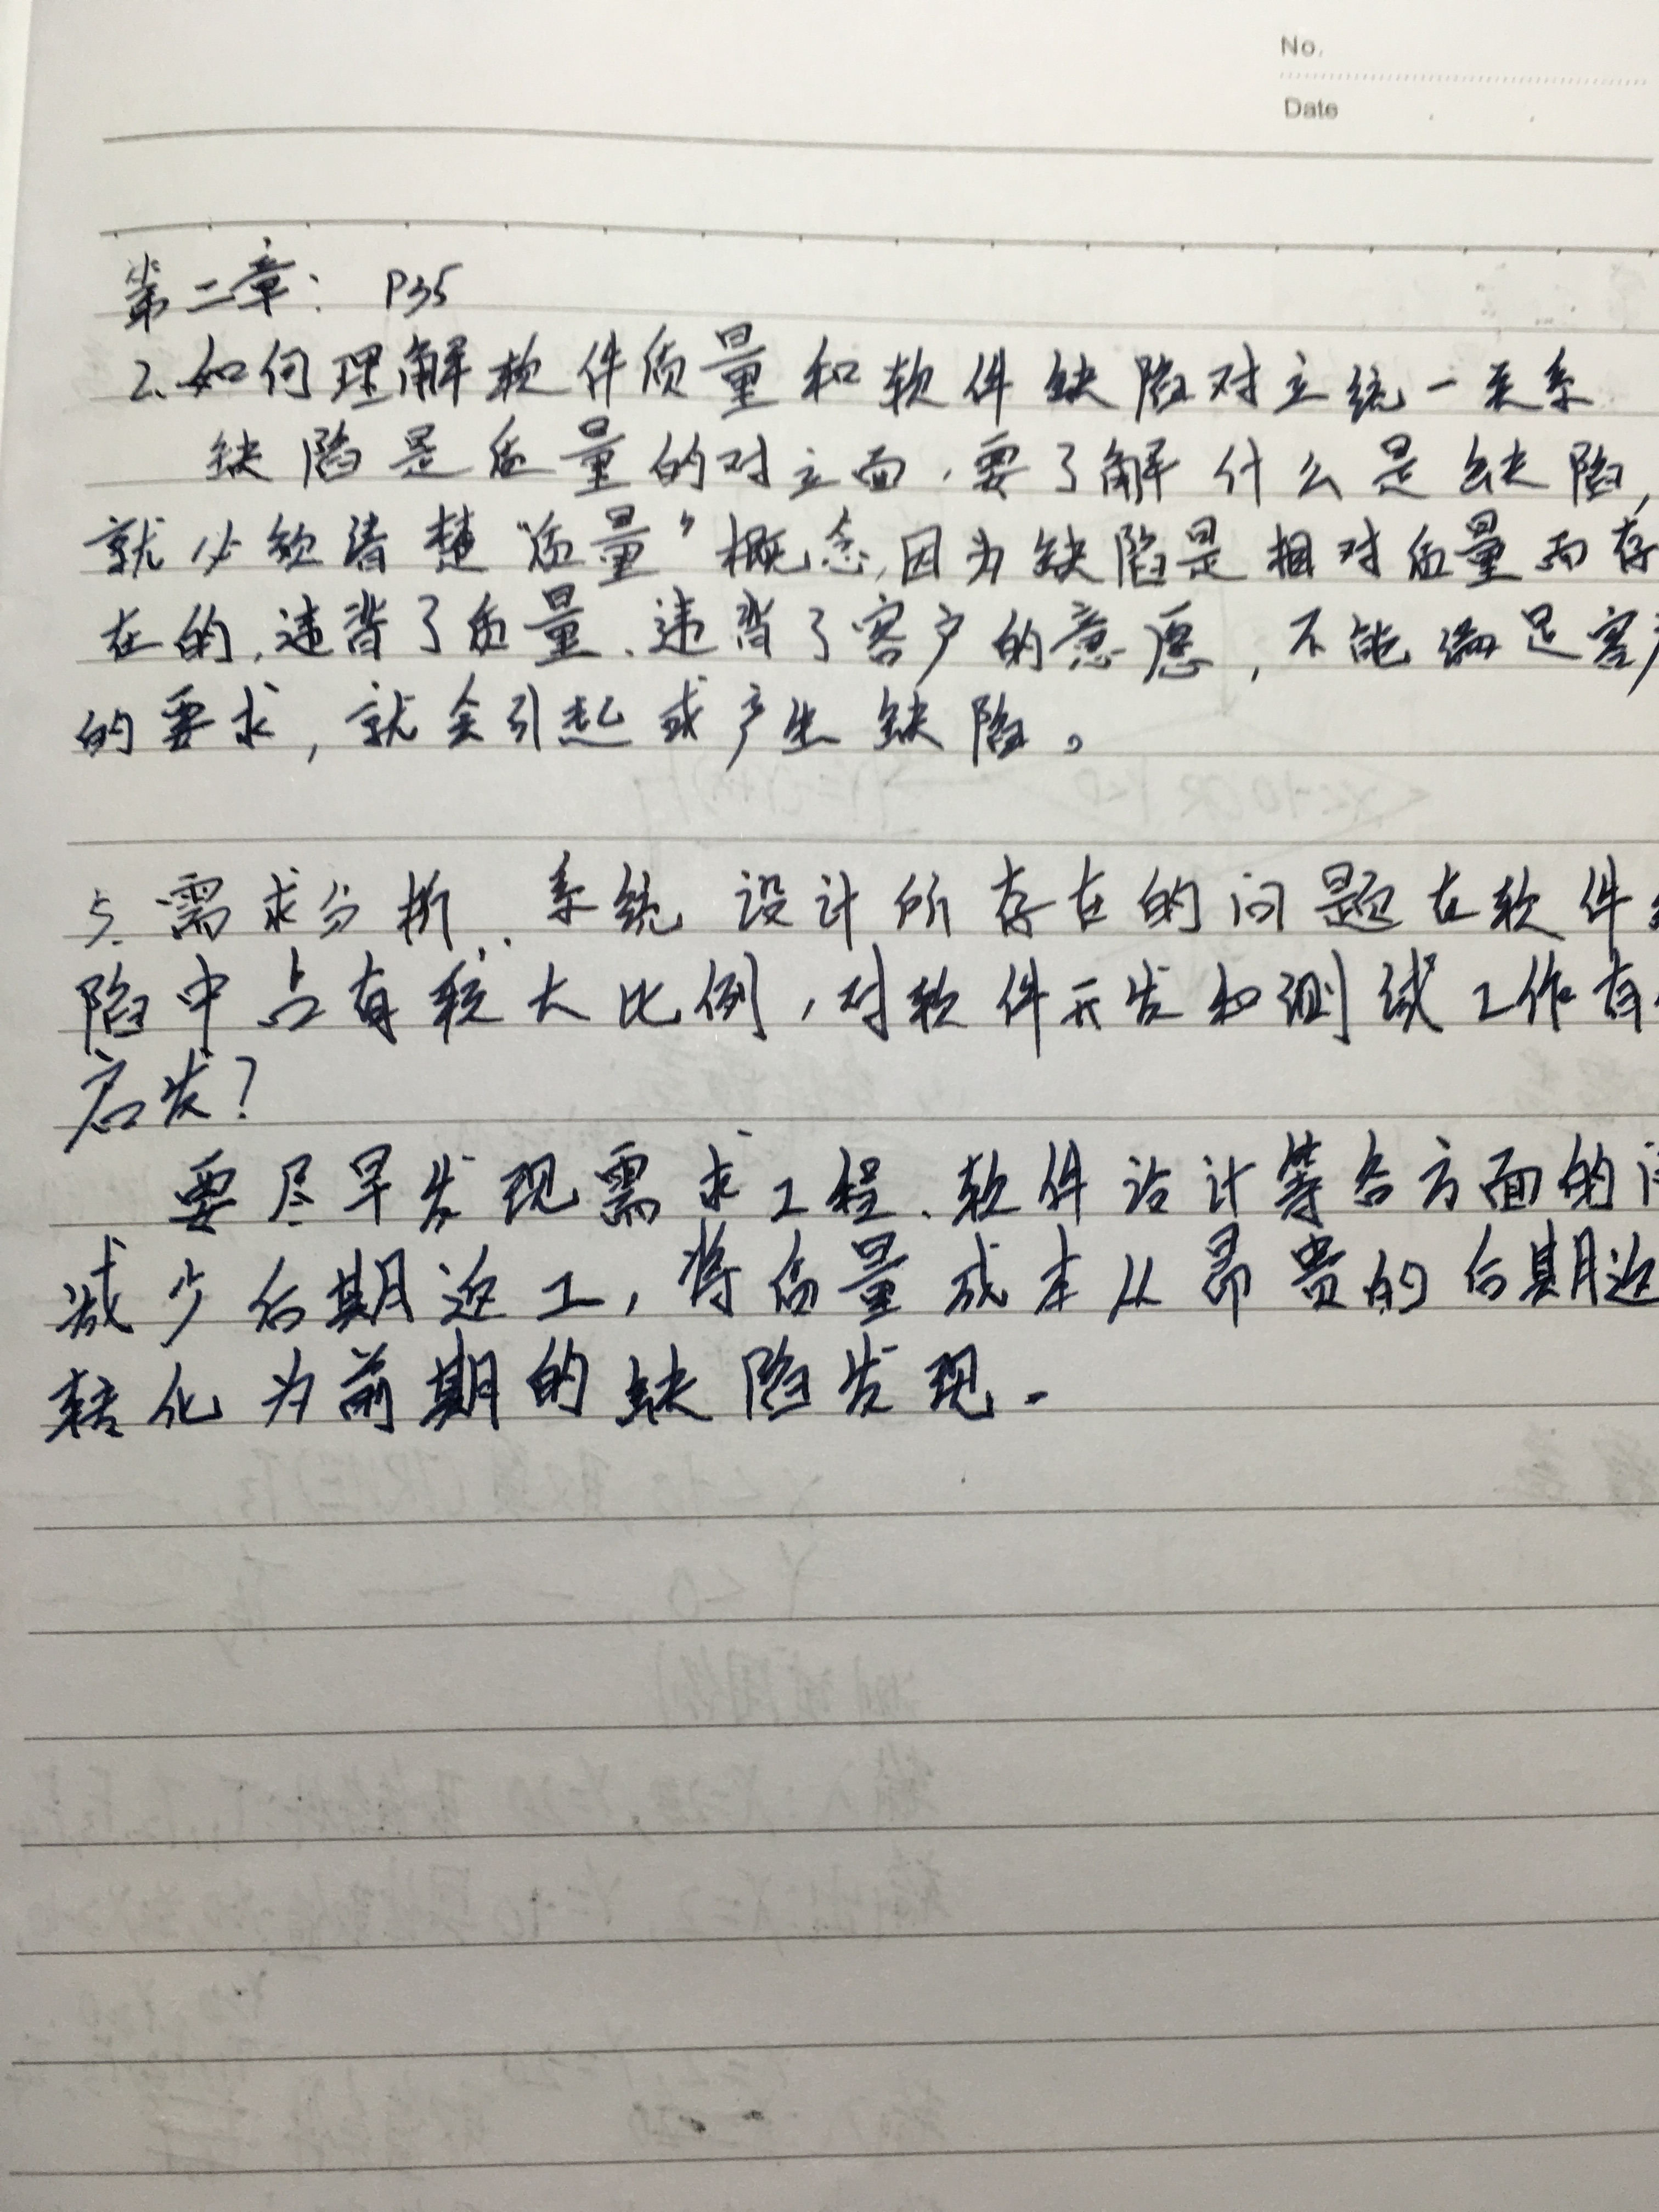 No.
Date
第二章: P35
2.如何理解软件质量和软件缺陷对立统一关系
缺陷是质量的对立面,要了解什么是缺陷,
就必须清楚"质量"概念,因为缺陷是相对质量而存
在的,违背了质量、违背了客户的意愿,不能满足客户
的要求,就会引起或产生缺陷。
5.需求分析、系统设计所存在的问题在软件
陷中占有较大比例,对软件开发和测试工作有
启发?
要尽早发现需求工程、软件设计等各方面的
减少后期返工,将质量成本从昂贵的后期返
转化为前期的缺陷发现.